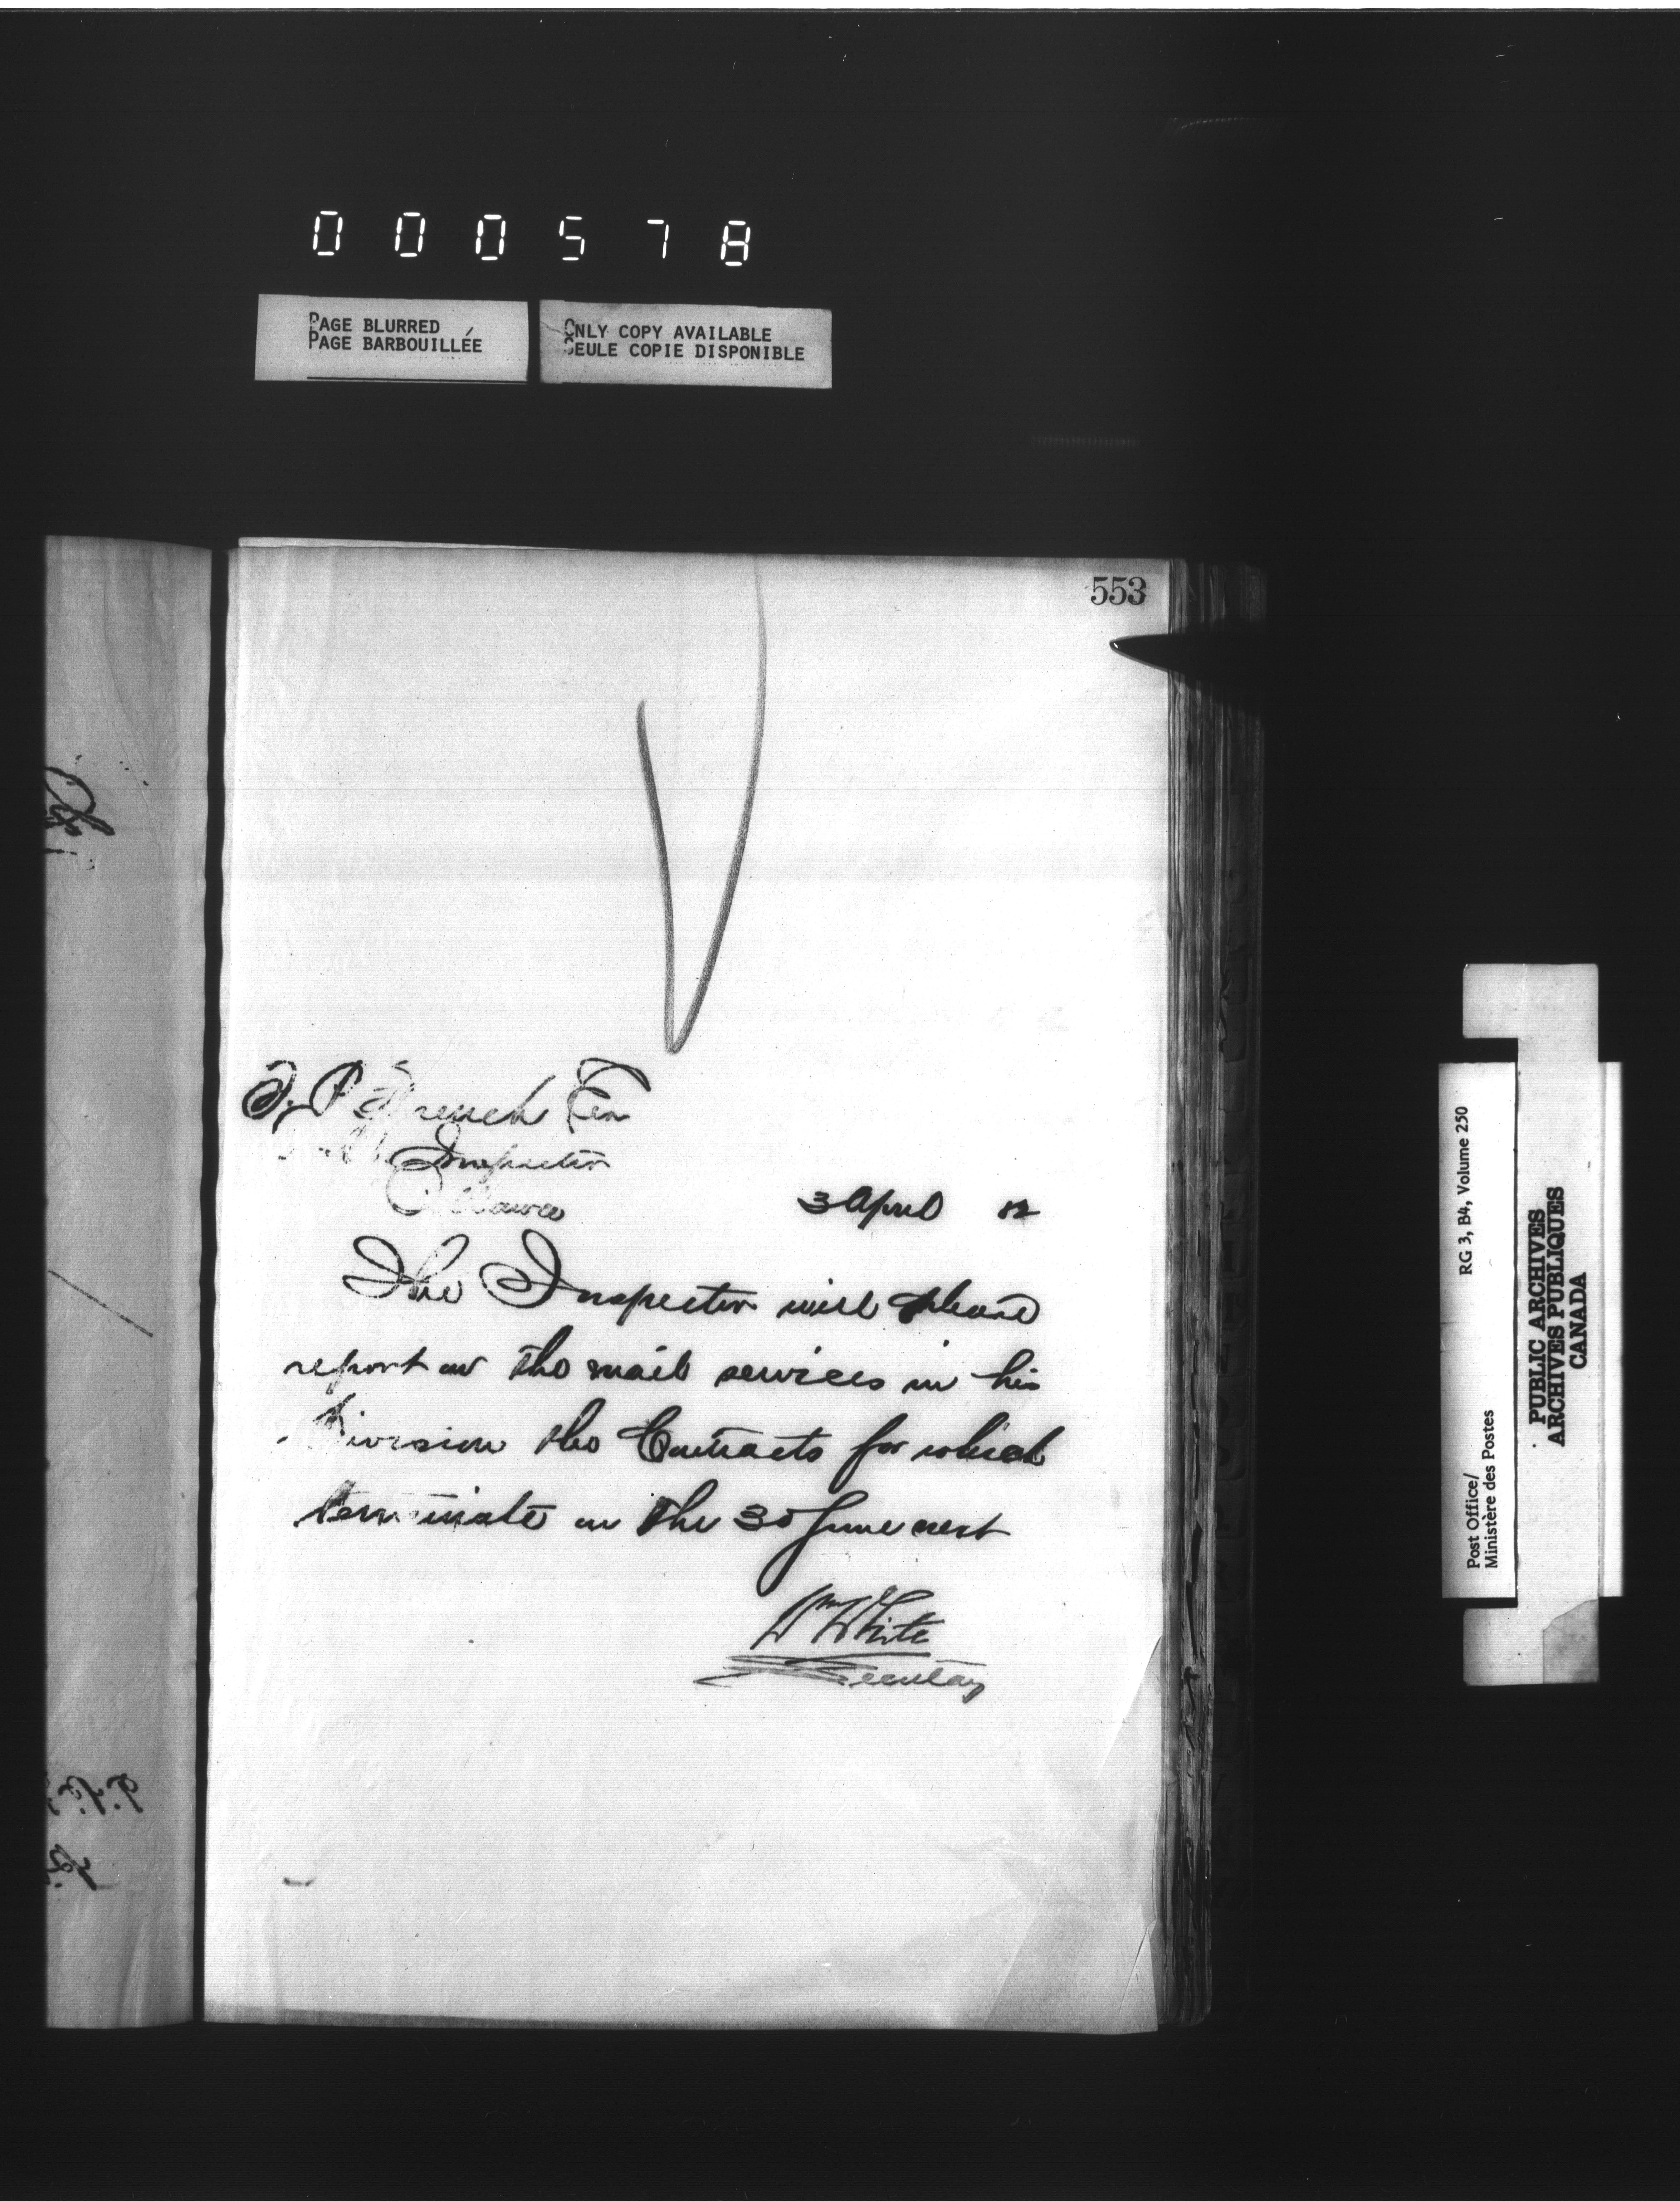 000578
PAGE BLURRED
PAGE BARBOUILLÉE
ONLY COPY AVAILABLE
SEULE COPIE DISPONIBLE
553
T. P. French Esq
Inspector
Ottawa
3 April 82
The Inspector will please
report on the mail services in his
Division the Contracts for which
terminate on the 30 June next
Wm White
Secretary
Post Office/
Ministère des Postes
RG 3, B4, Volume 250
PUBLIC ARCHIVES
ARCHIVES PUBLIQUES
CANADA